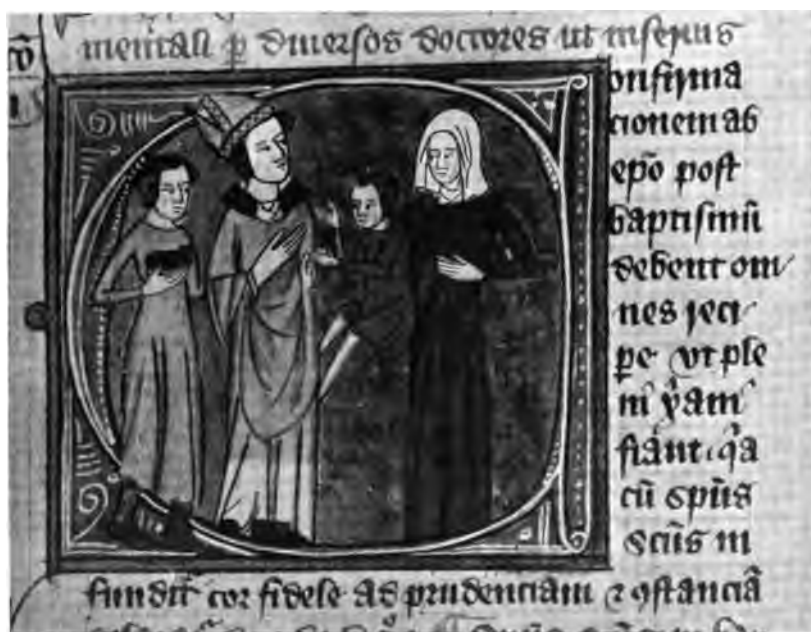 mentali p diuersos doctores ut inferius
onfirma
cionem ab
ep̄o post
baptismū
debent om
nes reci
ꝑe vt ple
ni x̄ani
fiant. q̄a
cū sp̄us
sc̄us in
fundit̄ cor fidele ad prudenciam ⁊ ꝯstanciā